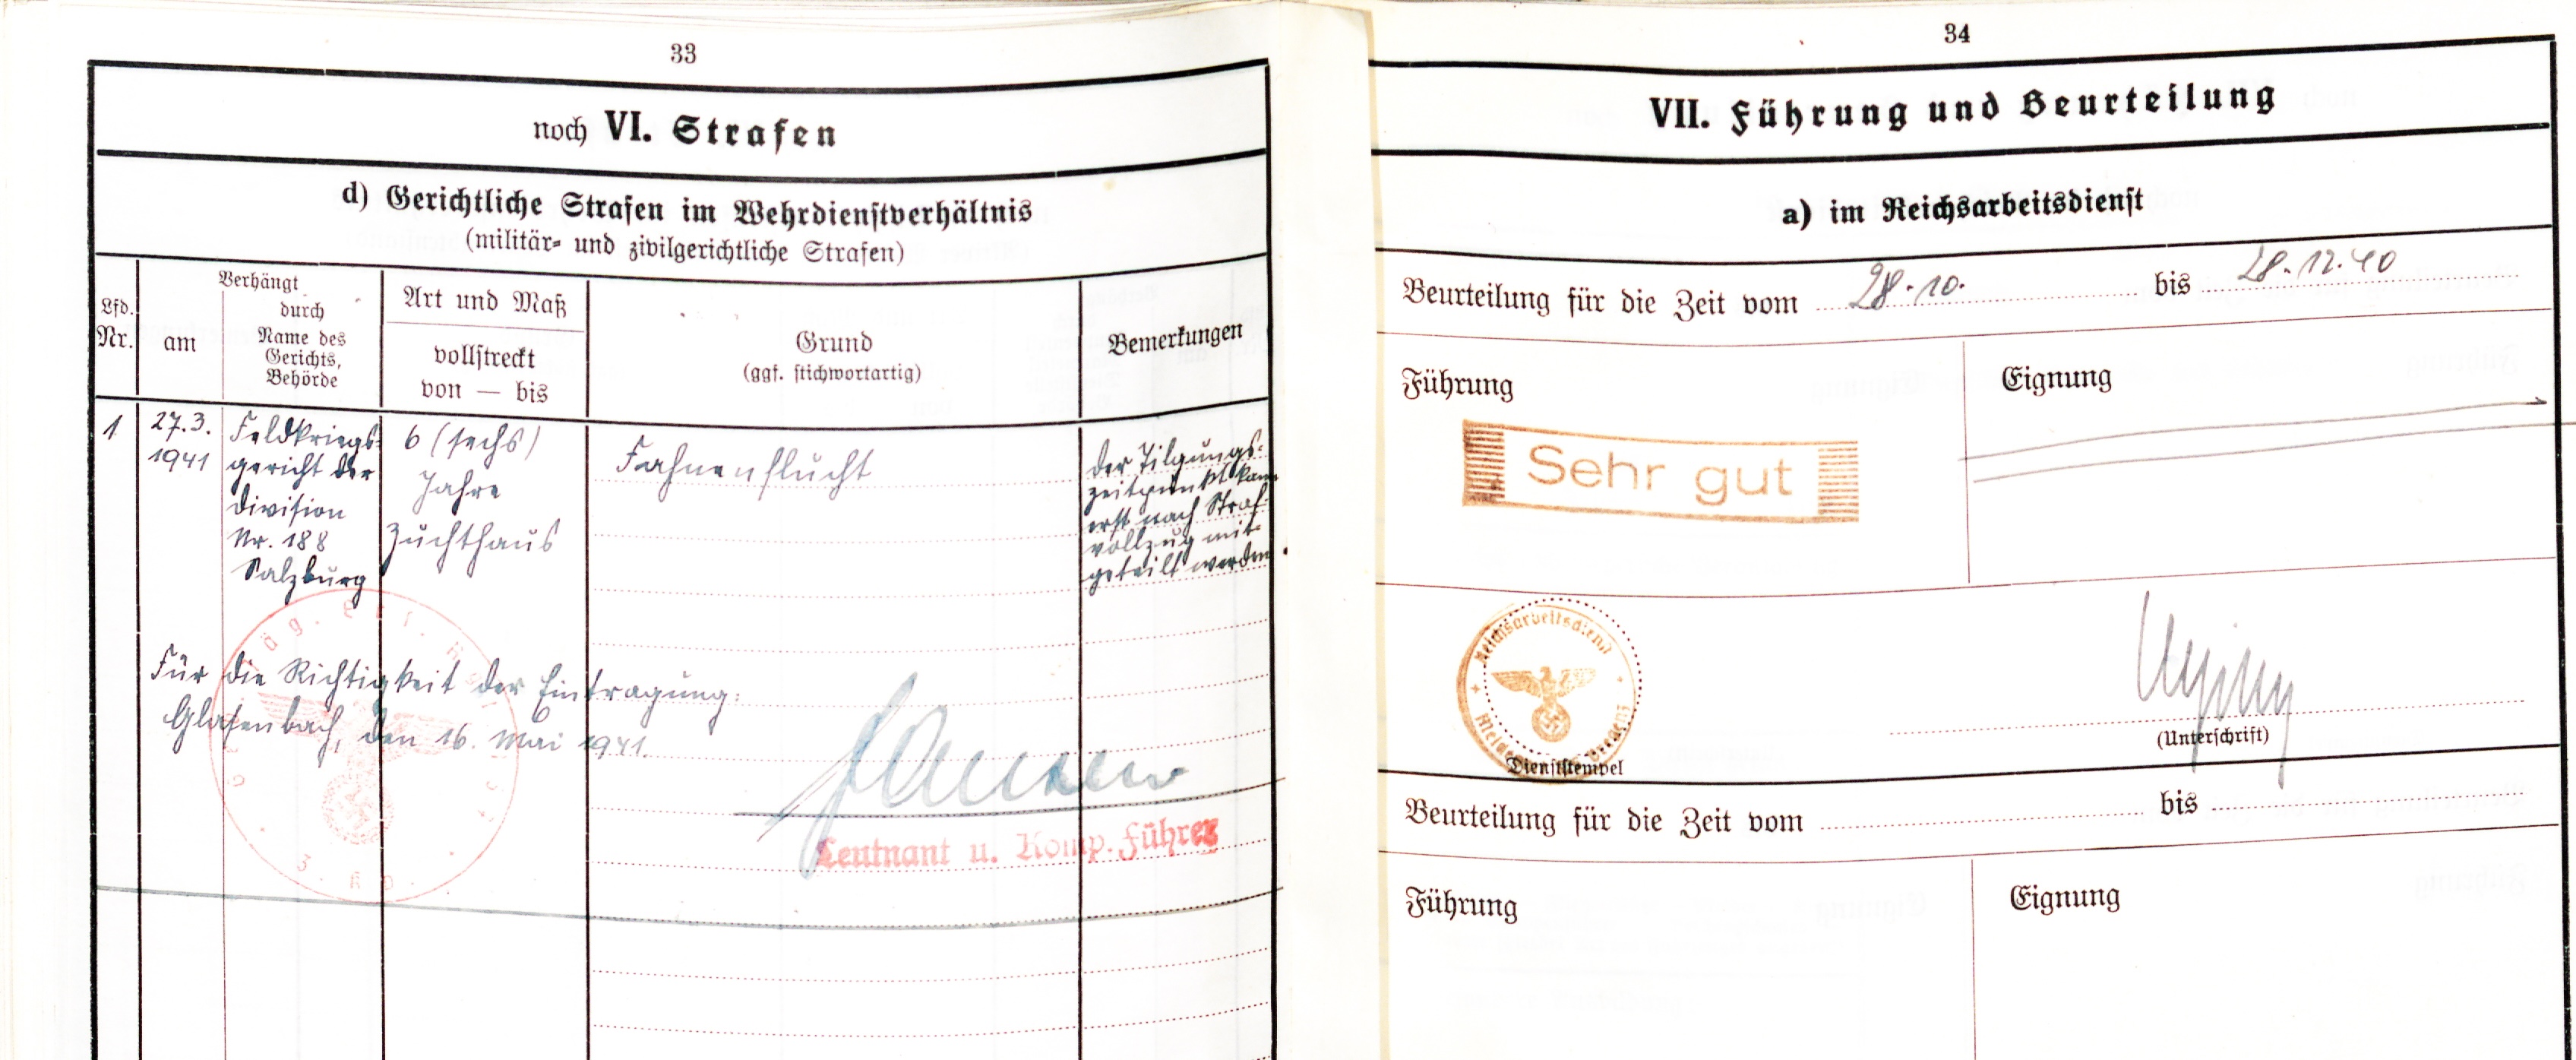 33
noch VI. Strafen
d) Gerichtliche Strafen im Wehrdienstverhältnis
(militär- und zivilgerichtliche Strafen)
Lfd.
Nr.
Verhängt
am
durch
Name des
Gerichts,
Behörde
Art und Maß
vollstreckt
von — bis
Grund
(ggf. stichwortartig)
Bemerkungen
1
27.3.
1941
Feldkriegs-
gericht der
Division
Nr. 188
Salzburg
6 (sechs)
Jahre
Zuchthaus
Fahnenflucht
Der Tilgungs-
zeitpunkt kann
erst nach Straf-
vollzug mit-
geteilt werden.
Für die Richtigkeit der Eintragung:
Glasenbach, den 16. Mai 1941.
Leutnant u. Komp. Führer
3. Kp.
34
VII. Führung und Beurteilung
a) im Reichsarbeitsdienst
Beurteilung für die Zeit vom 28.10. bis 28.12.40
Führung
Eignung
Sehr gut
Reichsarbeitsdienst
Dienststempel
(Unterschrift)
Beurteilung für die Zeit vom bis
Führung
Eignung